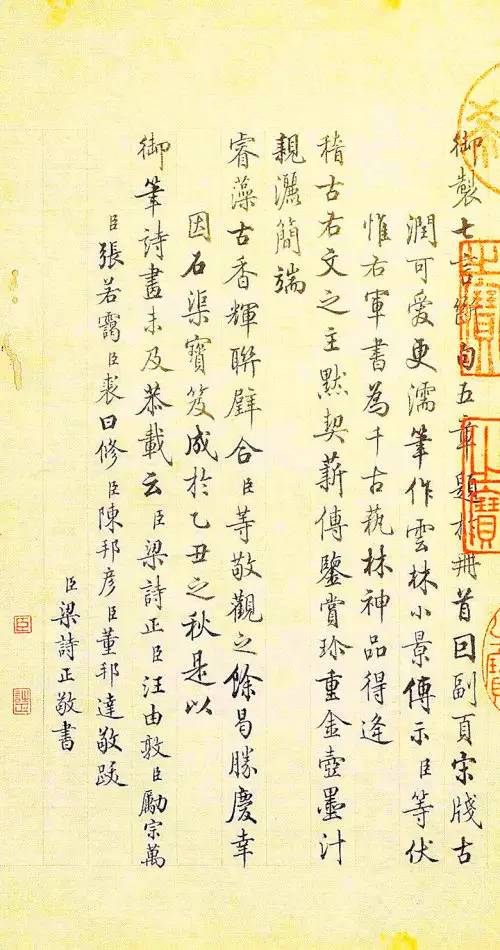 御製七言斷句五章題於冊首因副頁宋牋古
潤可愛更濡筆作雲林小景傳示臣等伏
惟右軍書為千古藝林神品得逢
稽古右文之主默契薪傳鑒賞珍重金壺墨汁
親灑簡端
睿藻古香輝聯璧合臣等敬觀之餘曷勝慶幸
因石渠寶笈成於乙丑之秋是以
御筆詩畫未及恭載云臣梁詩正臣汪由敦臣勵宗萬
臣張若靄臣裘曰修臣陳邦彥臣董邦達敬跋
臣梁詩正敬書
之寶
之寶
臣